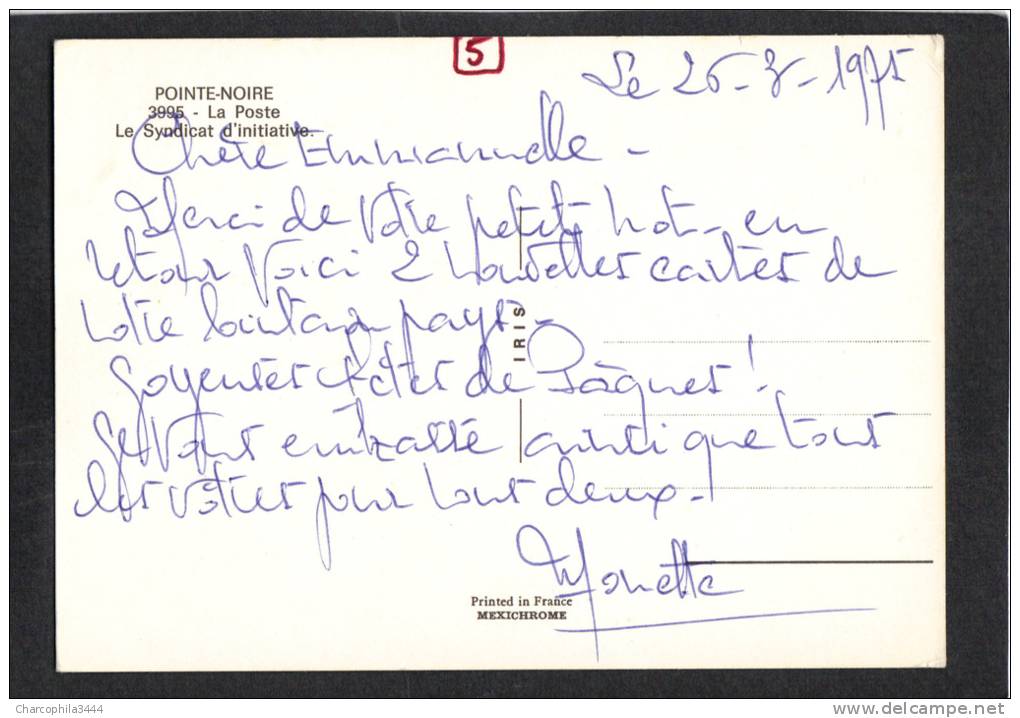 5
Le 26-3-1975
POINTE-NOIRE
3995 - La Poste
Le Syndicat d'initiative.
Chère Emmanuelle -
Merci de votre petit mot - en
retour voici 2 nouvelles cartes de
notre lointain pays -
Joyeuses fêtes de Pâques !
Je vous embrasse ainsi que tous
les vôtres pour nous deux -!
IRIS
Monette
Printed in France
MEXICHROME
Charcophila3444
delcampe.net